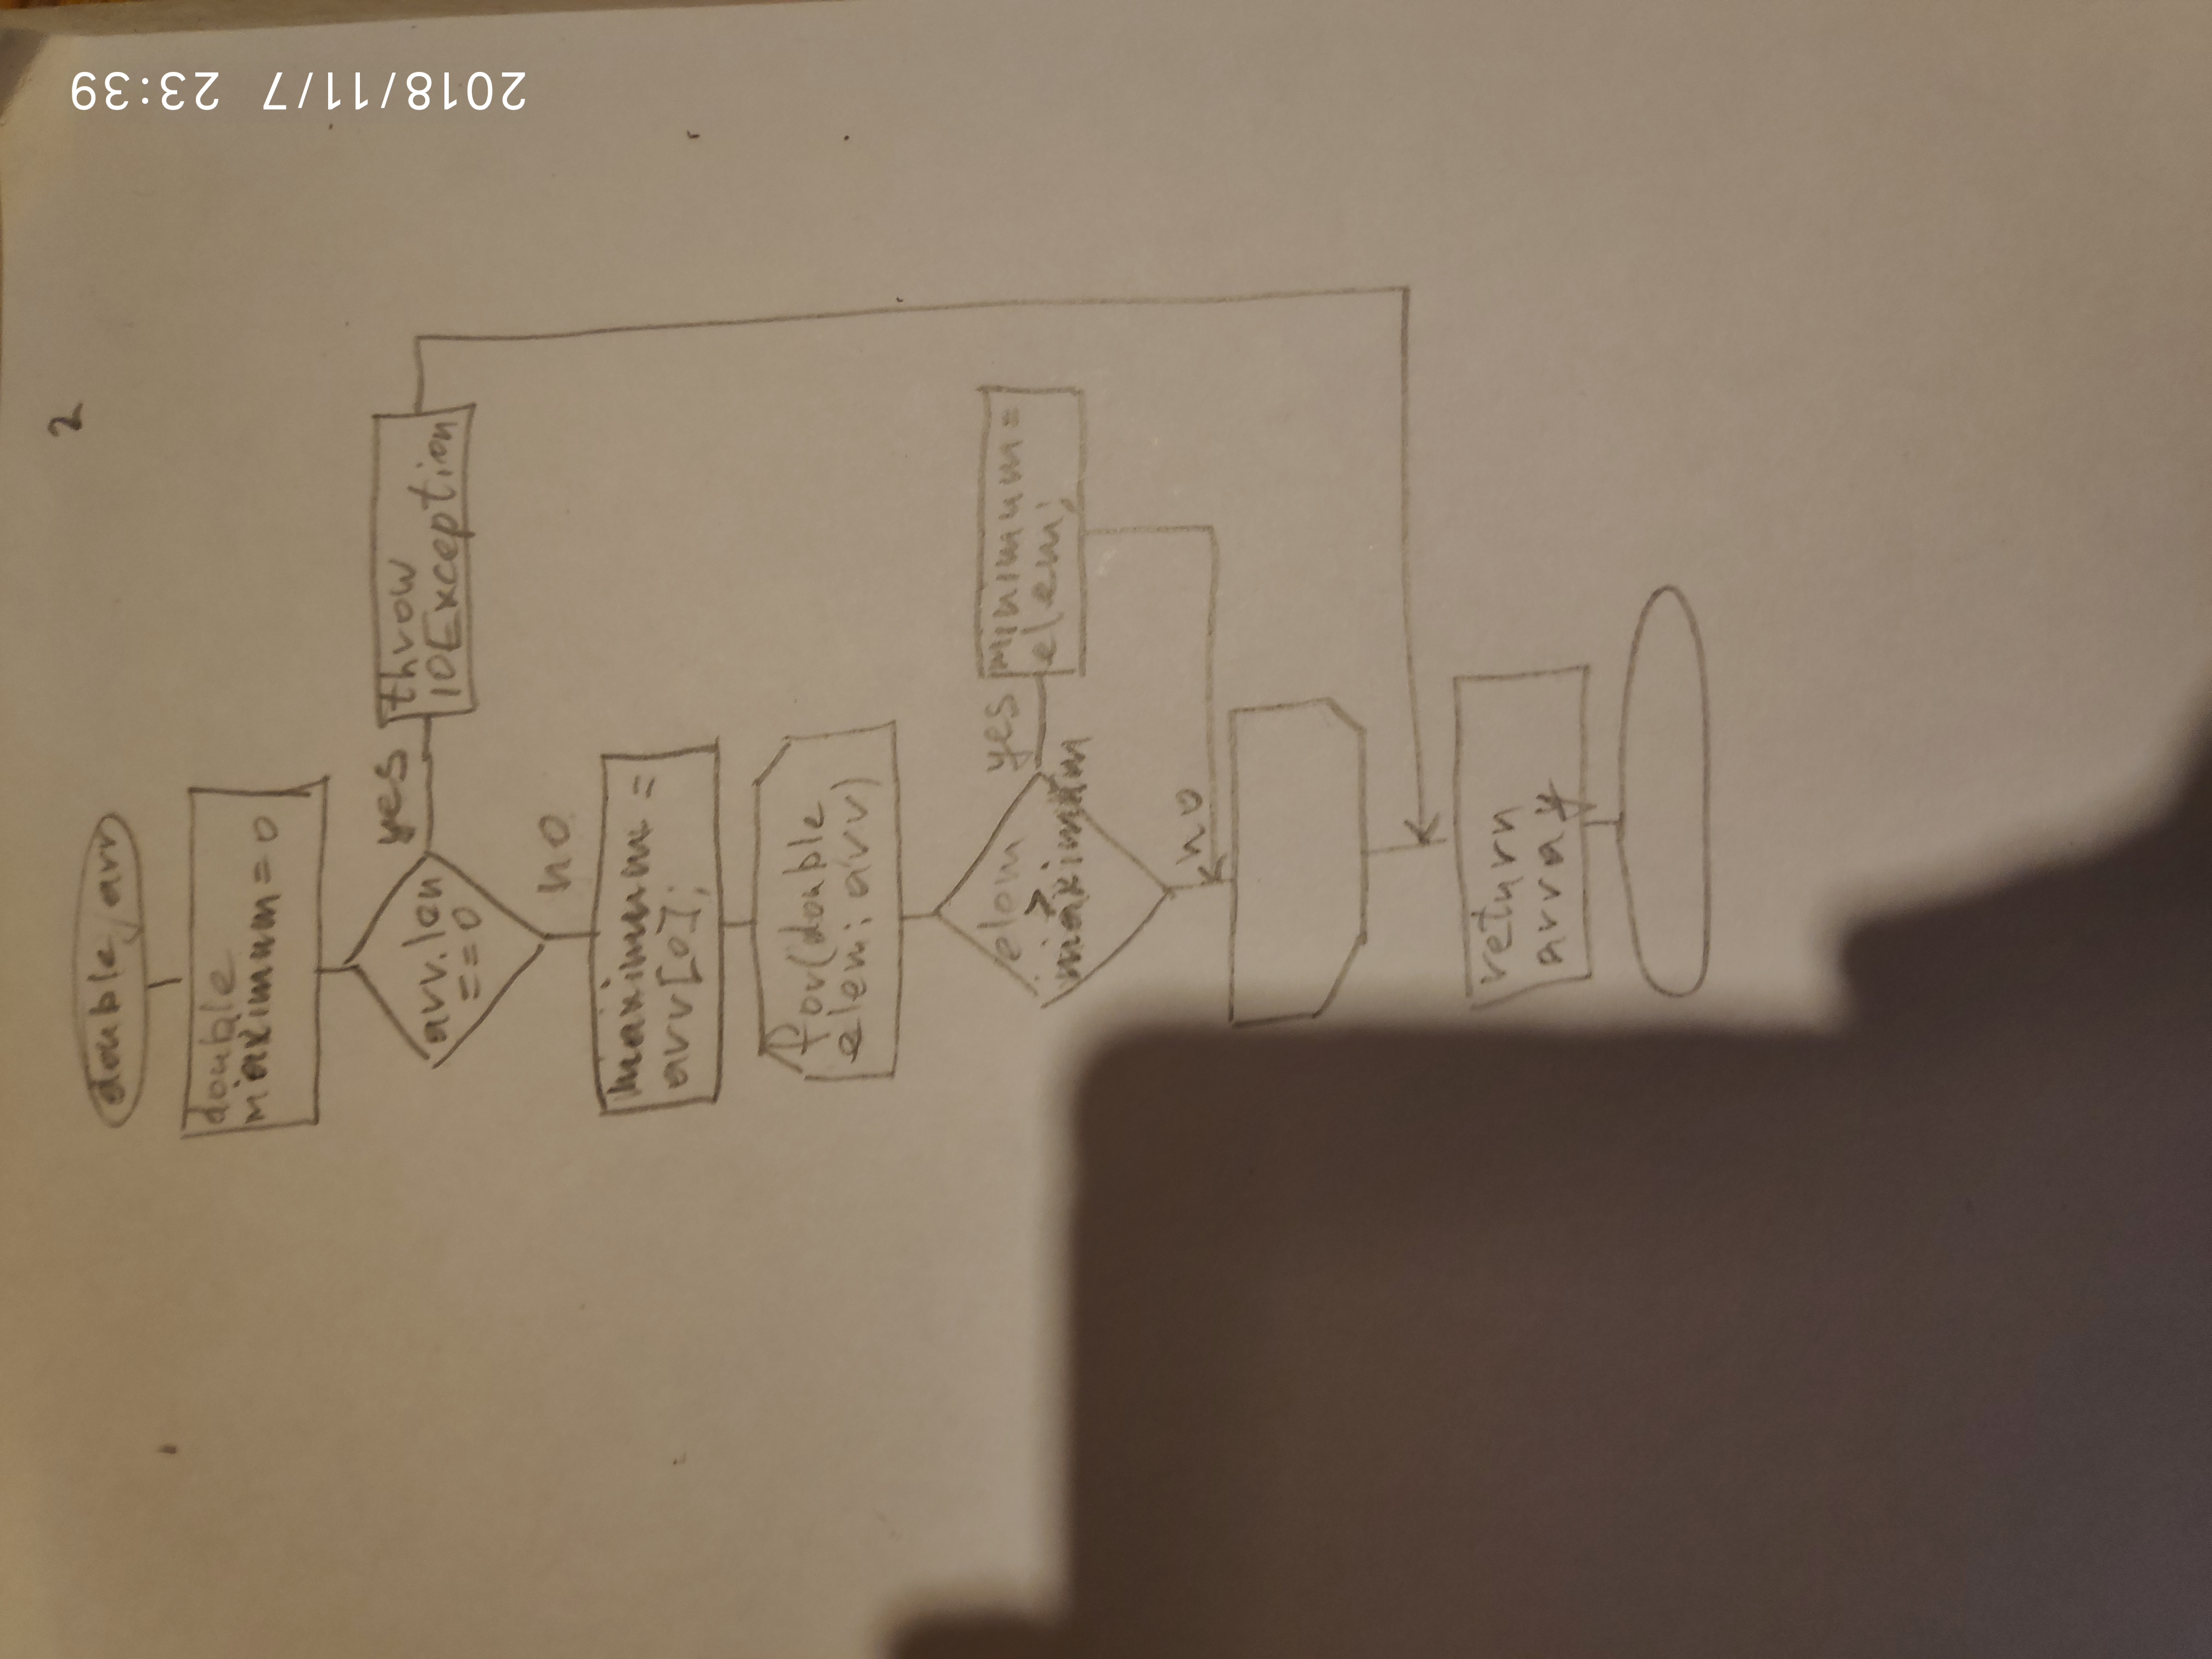 2
2018/11/7 23:39
double, arr
double
maximum = 0
arr.len
== 0
yes
throw
IOException
no
maximum =
arr[0];
for(double
elem; arr)
elem
>
maximum
yes
minimum =
elem;
no
return
array